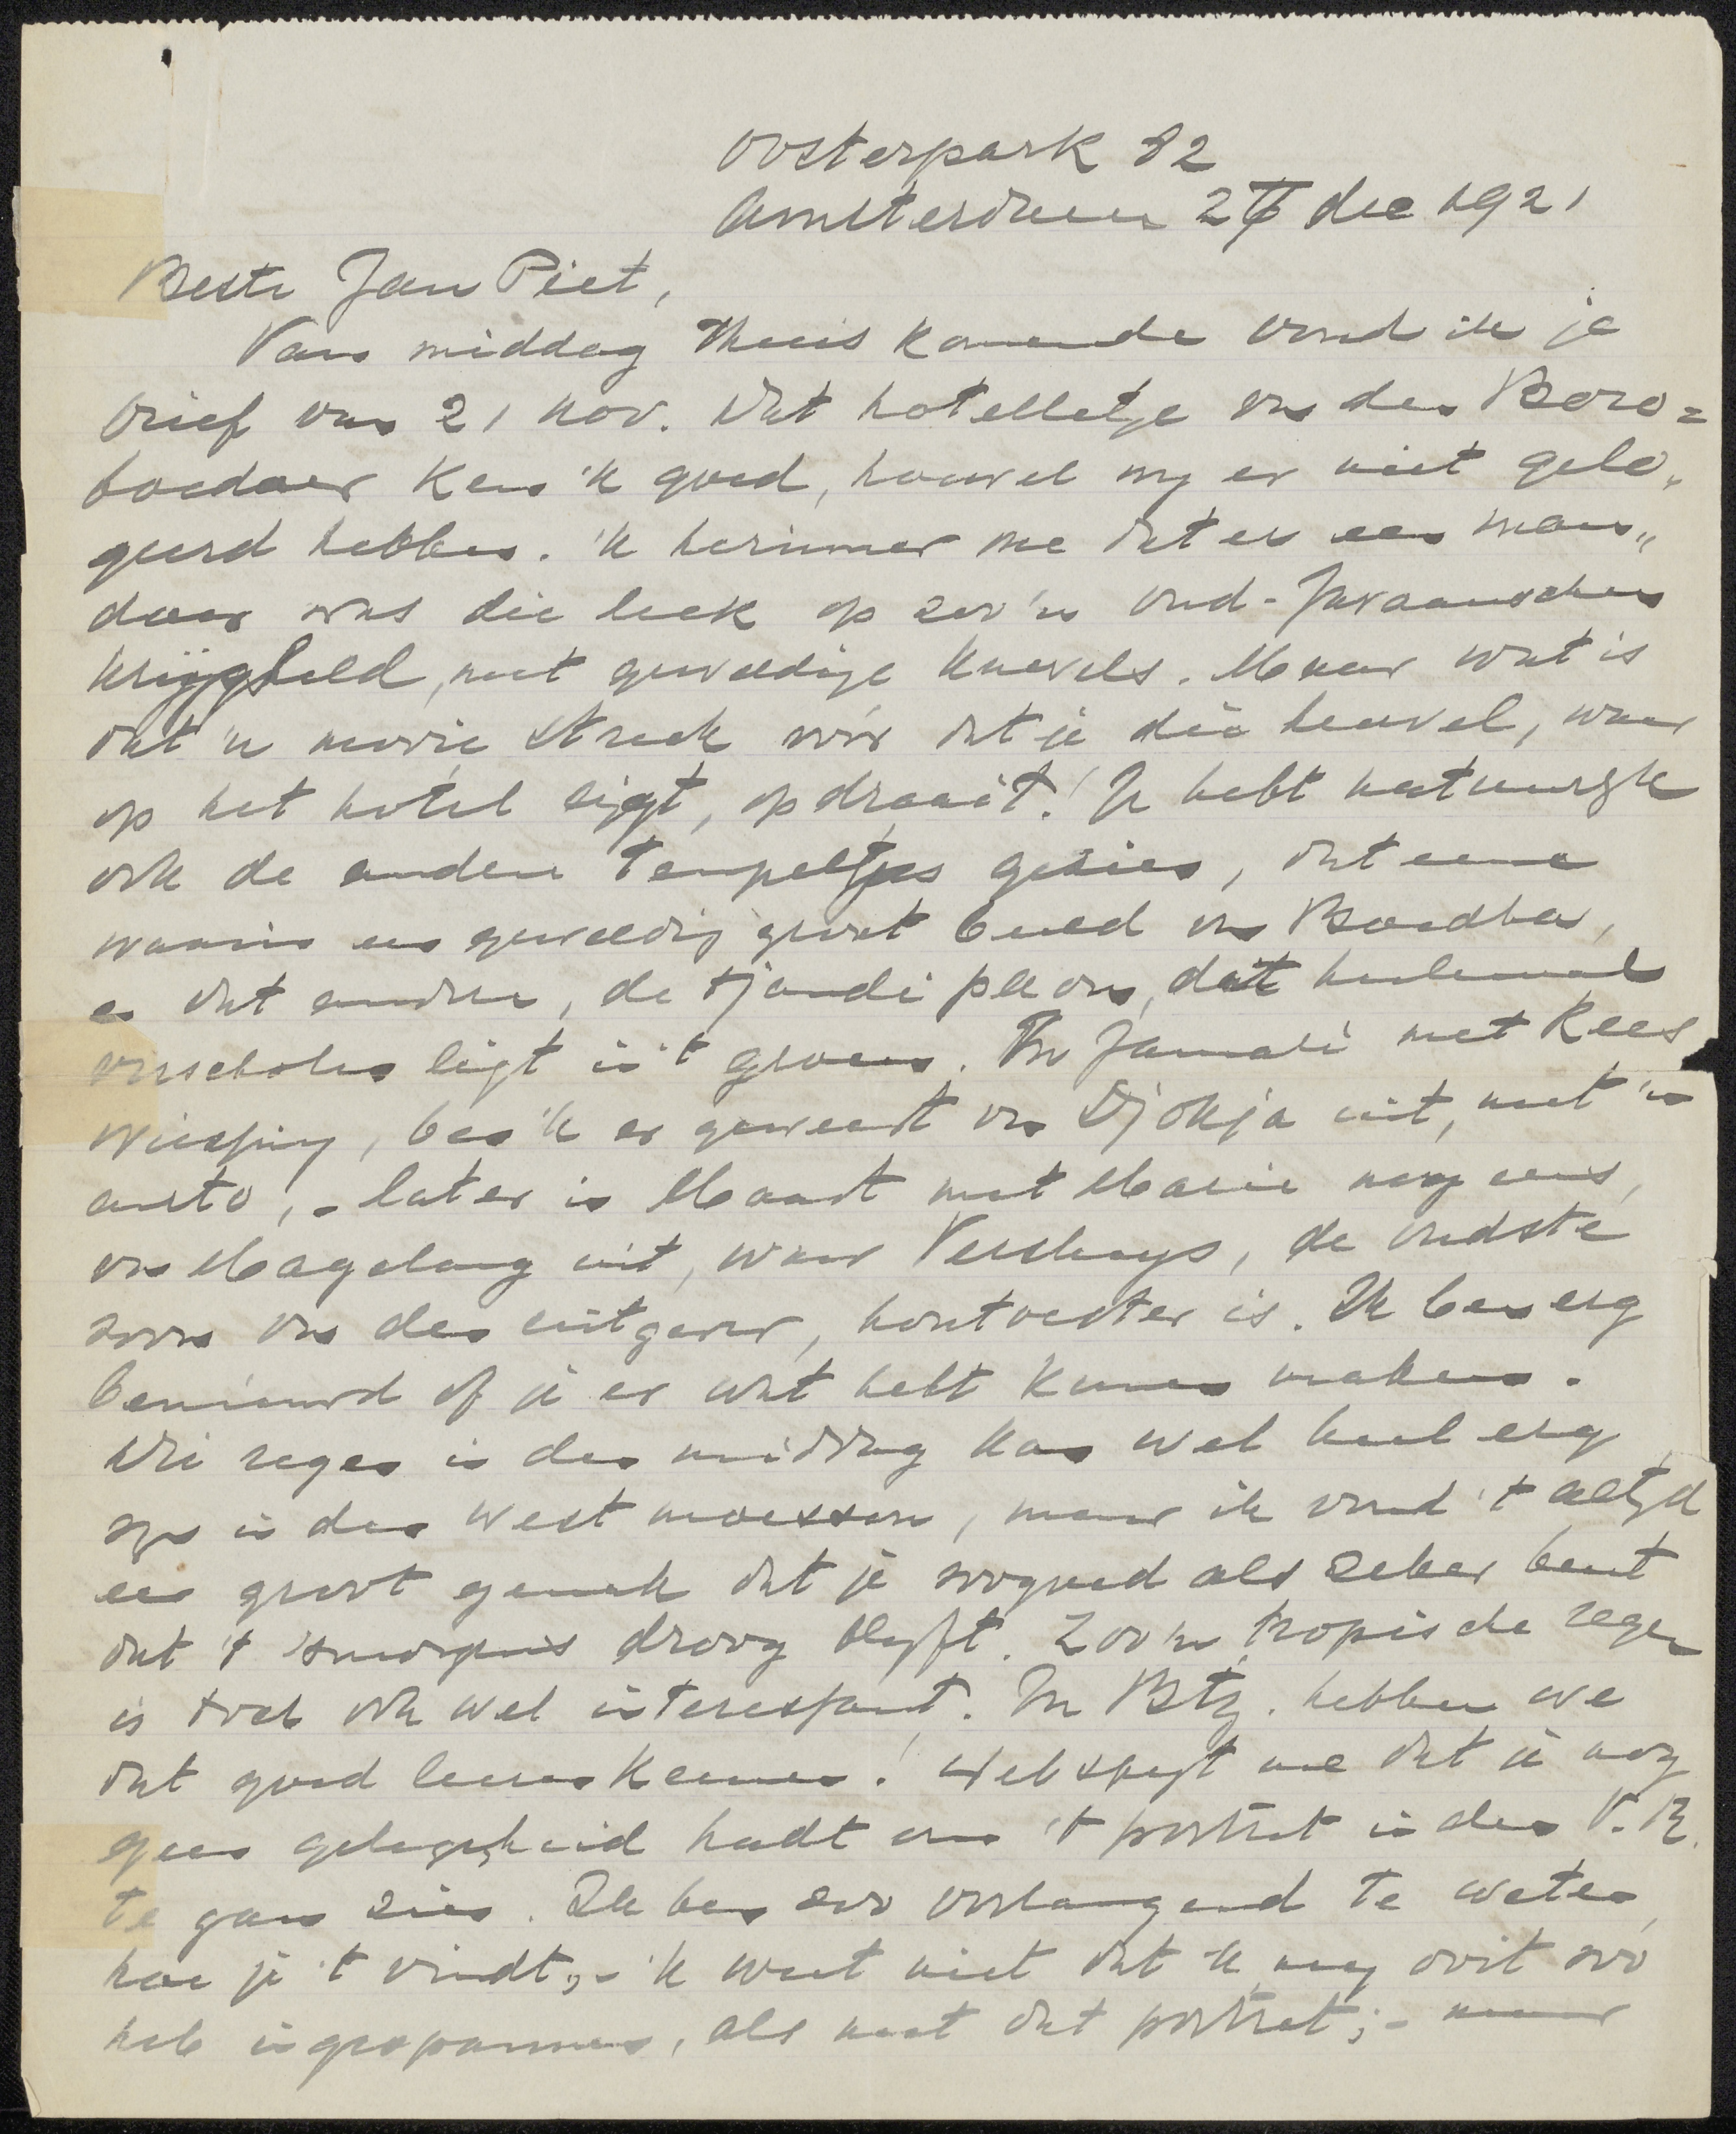 Oosterpark 82
Amsterdam 27 dec 1921
Beste Jan Piet,
Van middag thuis komende vond ik je
brief van 21 Nov. Dat hotelletje van den Boro=
boedoer ken 'k goed, hoewel wy er niet gelo„
geerd hebben. 'k herinner me dat er een man„
doer was die leek op zoo'n Oud-Javaanschen
krijgsheld, met geweldige knevels. Maar wat is
dat 'n mooie streek vóór dat je die heuvel, waar
op het hotel ligt, opdraait! Je hebt natuurlyk
ook de andere tempeltjes gezien, dat eene
waarin een geweldig groot beeld van Boeddha,
en dat andere, de tjandi pleon, dat heelemaal
verscholen ligt in 't groen. In Januari met Kees
Wiessing, ben 'k er geweest van Djokja uit, met 'n
auto, - later in Maart met Marie nog eens,
van Magelang uit, waar Versluys, de oudste
zoon van den uitgever, houtvester is. Ik ben erg
benieuwd of je er wat hebt kunnen maken.
Die regen in den middag kan wel heel erg
zyn in den West moesson, maar ik vond 't altyd
een groot gemak dat je zoogoed als zeker bent
dat 't 'smorgens droog blyft. Zoo'n tropische regen
is toch ook wel interessant. In Btz. hebben we
dat goed leeren kennen! Wel spyt me dat je nog
geen gelegenheid hadt om 't portret in den V.R.
te gaan zien. Ik ben zoo verlangend te weten,
hoe je 't vindt, - 'k weet niet dat 'k my ooit zoo
heb ingespannen, als met dat portret; - maar